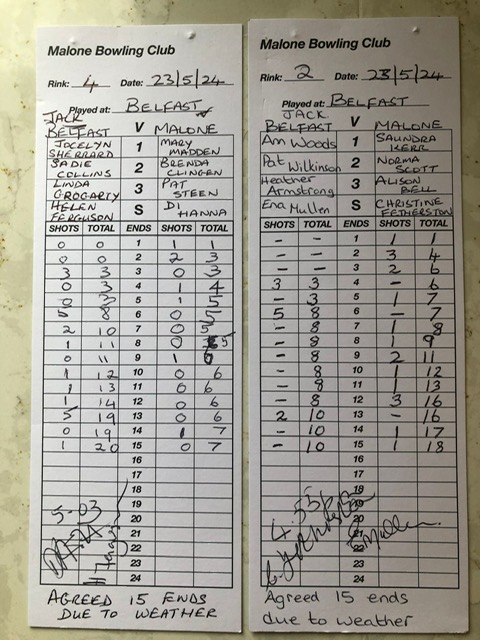 Malone Bowling Club
Rink: 4 Date: 23/5/24
Played at: BELFAST
JACK
BELFAST V MALONE
JOCELYN SHERRARD 1 MARY MADDEN
SADIE COLLINS 2 BRENDA CLINGEN
LINDA GROGARTY 3 PAT STEEN
HELEN FERGUSON S DI HANNA
SHOTS TOTAL ENDS SHOTS TOTAL
0 0 1 1 1
0 0 2 2 3
3 3 3 0 3
0 3 4 1 4
0 3 5 1 5
5 8 6 0 5
2 10 7 0 5
1 11 8 0 5
0 11 9 1 6
1 12 10 0 6
1 13 11 0 6
1 14 12 0 6
5 19 13 0 6
0 19 14 1 7
1 20 15 0 7
16
17
18
19
5-03 20
21
22
23
24
AGREED 15 ENDS
DUE TO WEATHER
Malone Bowling Club
Rink: 2 Date: 23/5/24
Played at: BELFAST
JACK
BELFAST V MALONE
Ann Woods 1 SAUNDRA KERR
Pat Wilkinson 2 NORMA SCOTT
Heather Armstrong 3 ALISON BELL
Ena Mullen S CHRISTINE FETHERSTON
SHOTS TOTAL ENDS SHOTS TOTAL
- - 1 1 1
- - 2 3 4
- - 3 2 6
3 3 4 - 6
- 3 5 1 7
5 8 6 - 7
- 8 7 1 8
- 8 8 1 9
- 8 9 2 11
- 8 10 1 12
- 8 11 1 13
- 8 12 3 16
2 10 13 - 16
- 10 14 1 17
- 10 15 1 18
16
17
18
19
4.53 20
21
E Mullen 22
23
24
Agreed 15 ends
due to weather